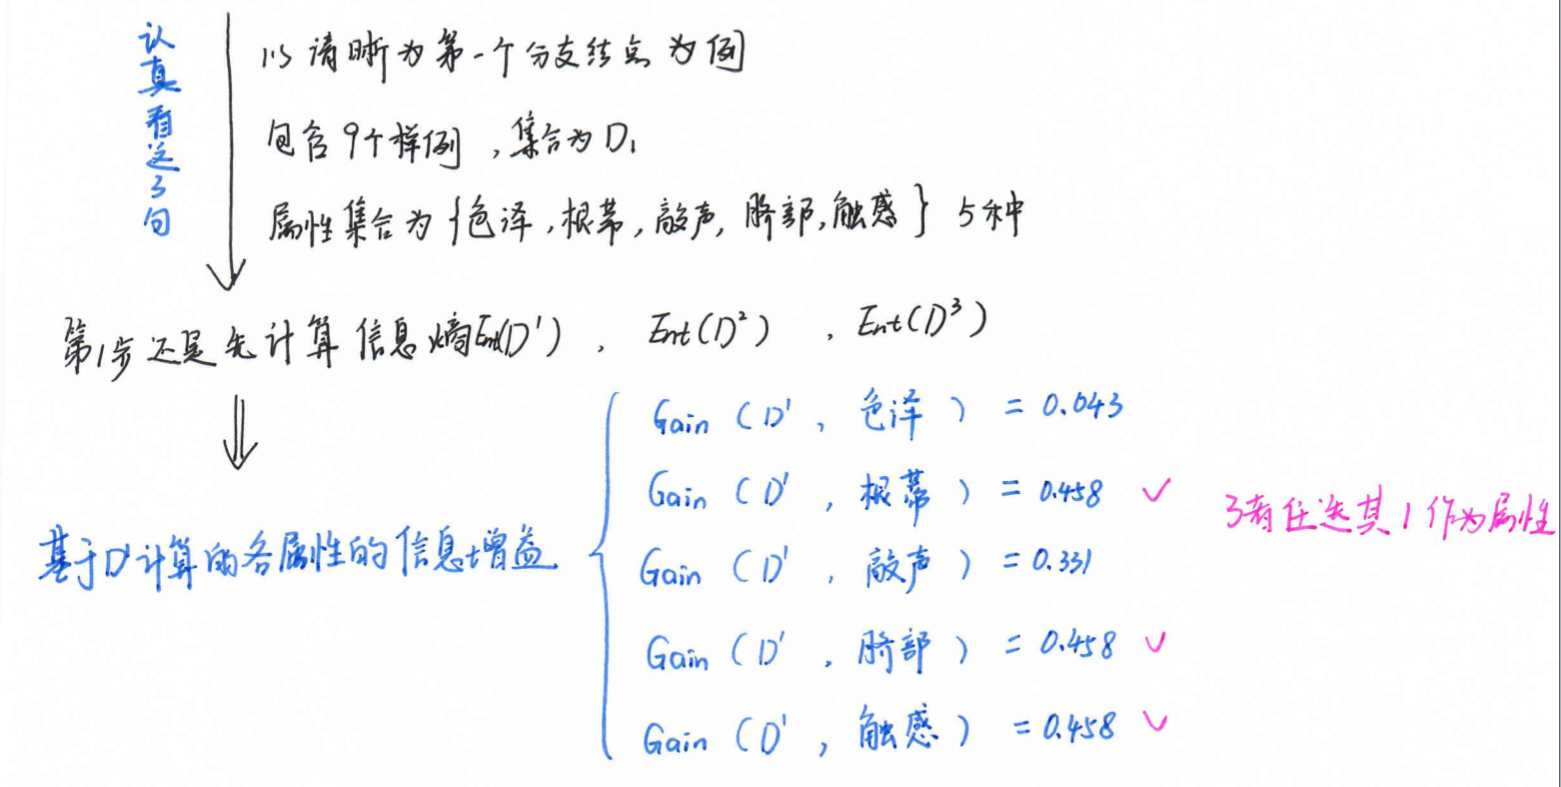 认真看这3句
以清晰为第一个分支结点为例
包含9个样例，集合为D₁
属性集合为{色泽，根蒂，敲声，脐部，触感} 5种
第1步还是先计算信息熵Ent(D¹)，Ent(D²)，Ent(D³)
基于D¹计算的各属性的信息增益
Gain（D¹，色泽）= 0.043
Gain（D¹，根蒂）= 0.458 ✓
3者任选其1作为属性
Gain（D¹，敲声）= 0.331
Gain（D¹，脐部）= 0.458 ✓
Gain（D¹，触感）= 0.458 ✓